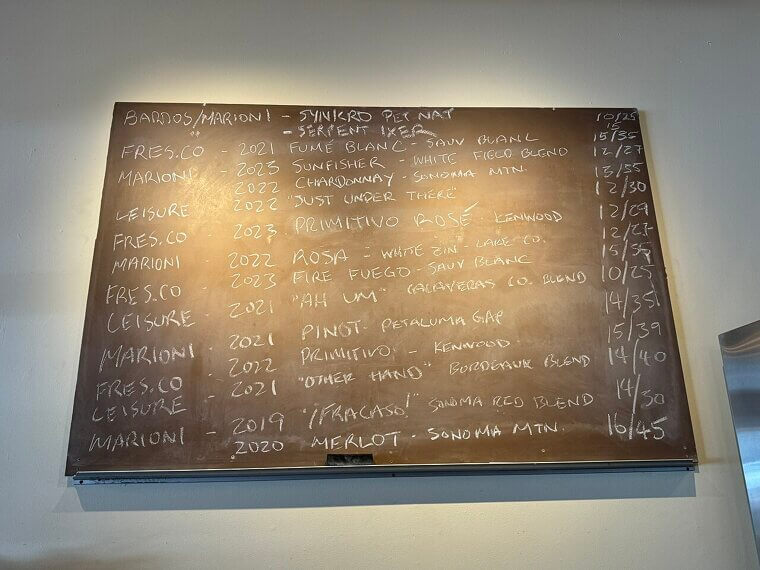 BARDOS/MARIONI - SYNKRO PET NAT 10/25
- SERPENT IXER 15/35
FRES.CO - 2021 FUMÉ BLANC - SAUV BLANC 12/27
MARIONI - 2023 SUNFISHER - WHITE FIELD BLEND
2022 CHARDONNAY - SONOMA MTN.
LEISURE - 2022 "JUST UNDER THERE" 12/30
FRES.CO - 2023 PRIMITIVO ROSÉ - KENWOOD 12/29
MARIONI - 2022 ROSA - WHITE ZIN - LAKE CO.
FRES.CO - 2023 FIRE FUEGO - SAUV BLANC
LEISURE - 2021 "AH UM" CALAVERAS CO. BLEND 10/25
MARIONI - 2021 PINOT - PETALUMA GAP 14/35
FRES.CO - 2022 PRIMITIVO - KENWOOD 15/39
LEISURE - 2021 "OTHER HAND" BORDEAUX BLEND 14/40
MARIONI - 2019 "¡FRACASO!" SONOMA RED BLEND 14/50
2020 MERLOT - SONOMA MTN. 16/45